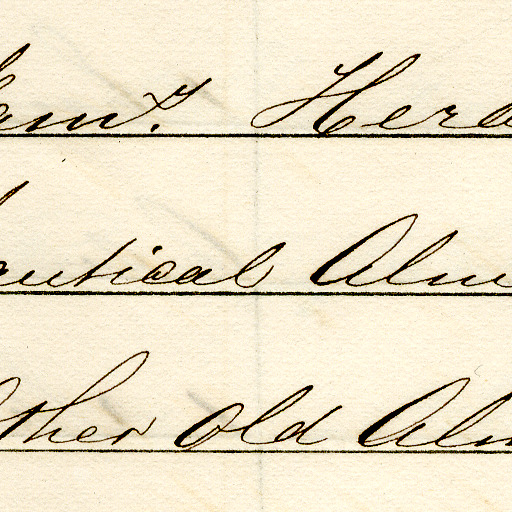 Samʳ. Hera
autical Alm
Other Old Alm